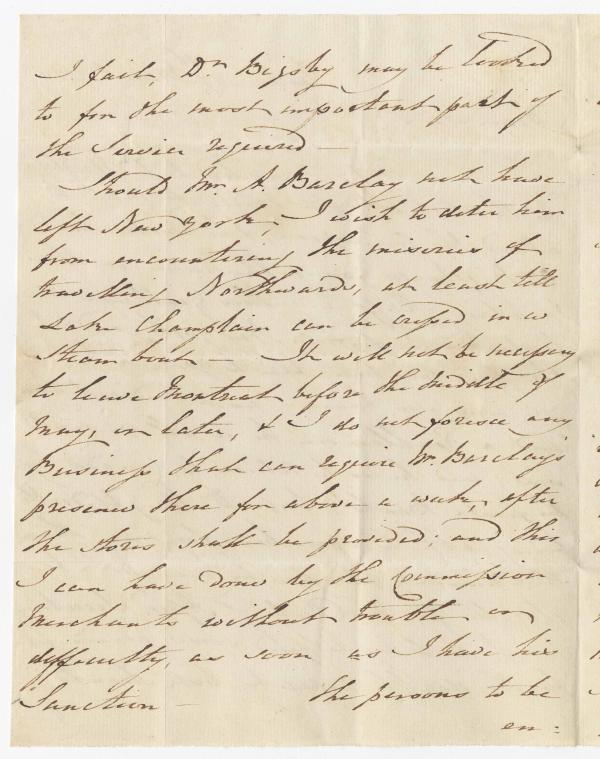 I fail, Dr. Bigsby may be looked
to for the most important part of
the Service required —
Should Mr. A. Barclay not have
left New York, I wish to deter him
from encountering the miseries of
travelling Northwards, at least till
Lake Champlain can be crossed in a
Steam boat — It will not be necessary
to leave Montreal before the middle of
May, or later, & I do not forsee any
Business that can require Mr. Barclay's
presence there for above a week, after
the stores shall be provided; and this
I can have done by the Commission
Merchants without trouble or
difficulty, as soon as I have his
Sanction — The persons to be
en=